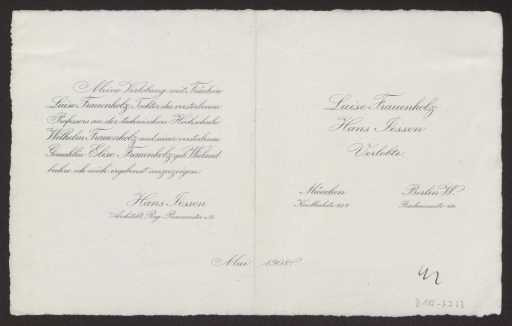 Meine Verlobung mit Fräulein
Luise Frauenholz, Tochter des verstorbenen
Professors an der technischen Hochschule
Wilhelm Frauenholz und seiner verstorbenen
Gemahlin Elise Frauenholz geb. Wieland
beehre ich mich ergebenst anzuzeigen.
Hans Jessen
Architekt, Reg.
Mai 1908
Luise Frauenholz
Hans Jessen
Verlobte.
München
Berlin W.